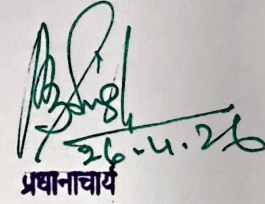 26-4-26
प्रधानाचार्य